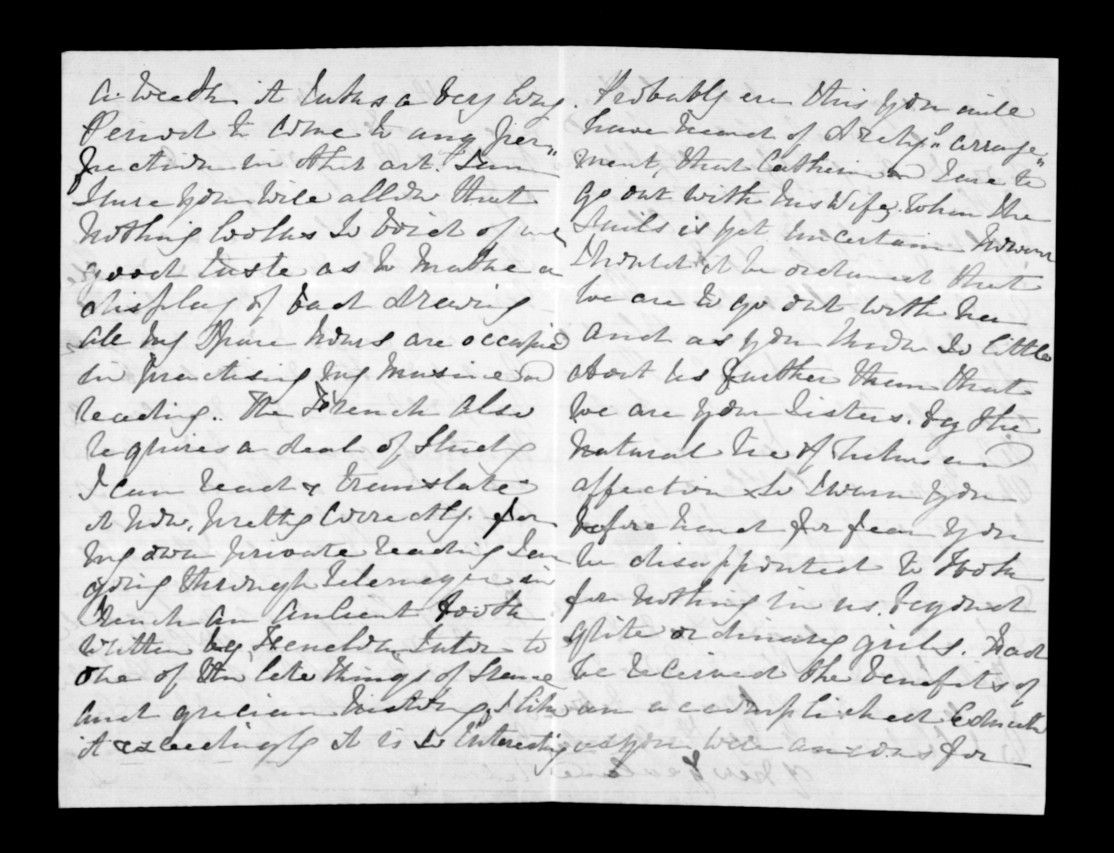 a week it takes a very long
Period to come to any per"
fection in that art. I am
Sure you will allow that
Nothing looks so void of
good taste as to make a
display of bad drawing
all my Spare hours are occupied
in practising my music and
reading.. The French also
requires a deal of Study
I can read & translate
it now, pretty correctly. for
my own private reading I am
going through Telemaque in
French an ancient book
written by Fenelon, Tutor to
one of the late Kings of France
and grecian history, I like
it exceedingly it is so Interesting
Probably ere this you will
have heard of "arrange"
ment, that Catherine and I are to
go out with his Wife, when she
Sails is yet uncertain however
Should it be ordained that
we are to go out with her
and as you know so little
about us further than that
we are your Sisters. by the
natural tie of
affection so I warn you
before hand for fear you
be disappointed to look
for nothing in us. beyond
qite ordinary girls. had
we received the benefits of
an accomplished Education
as you were anxious for